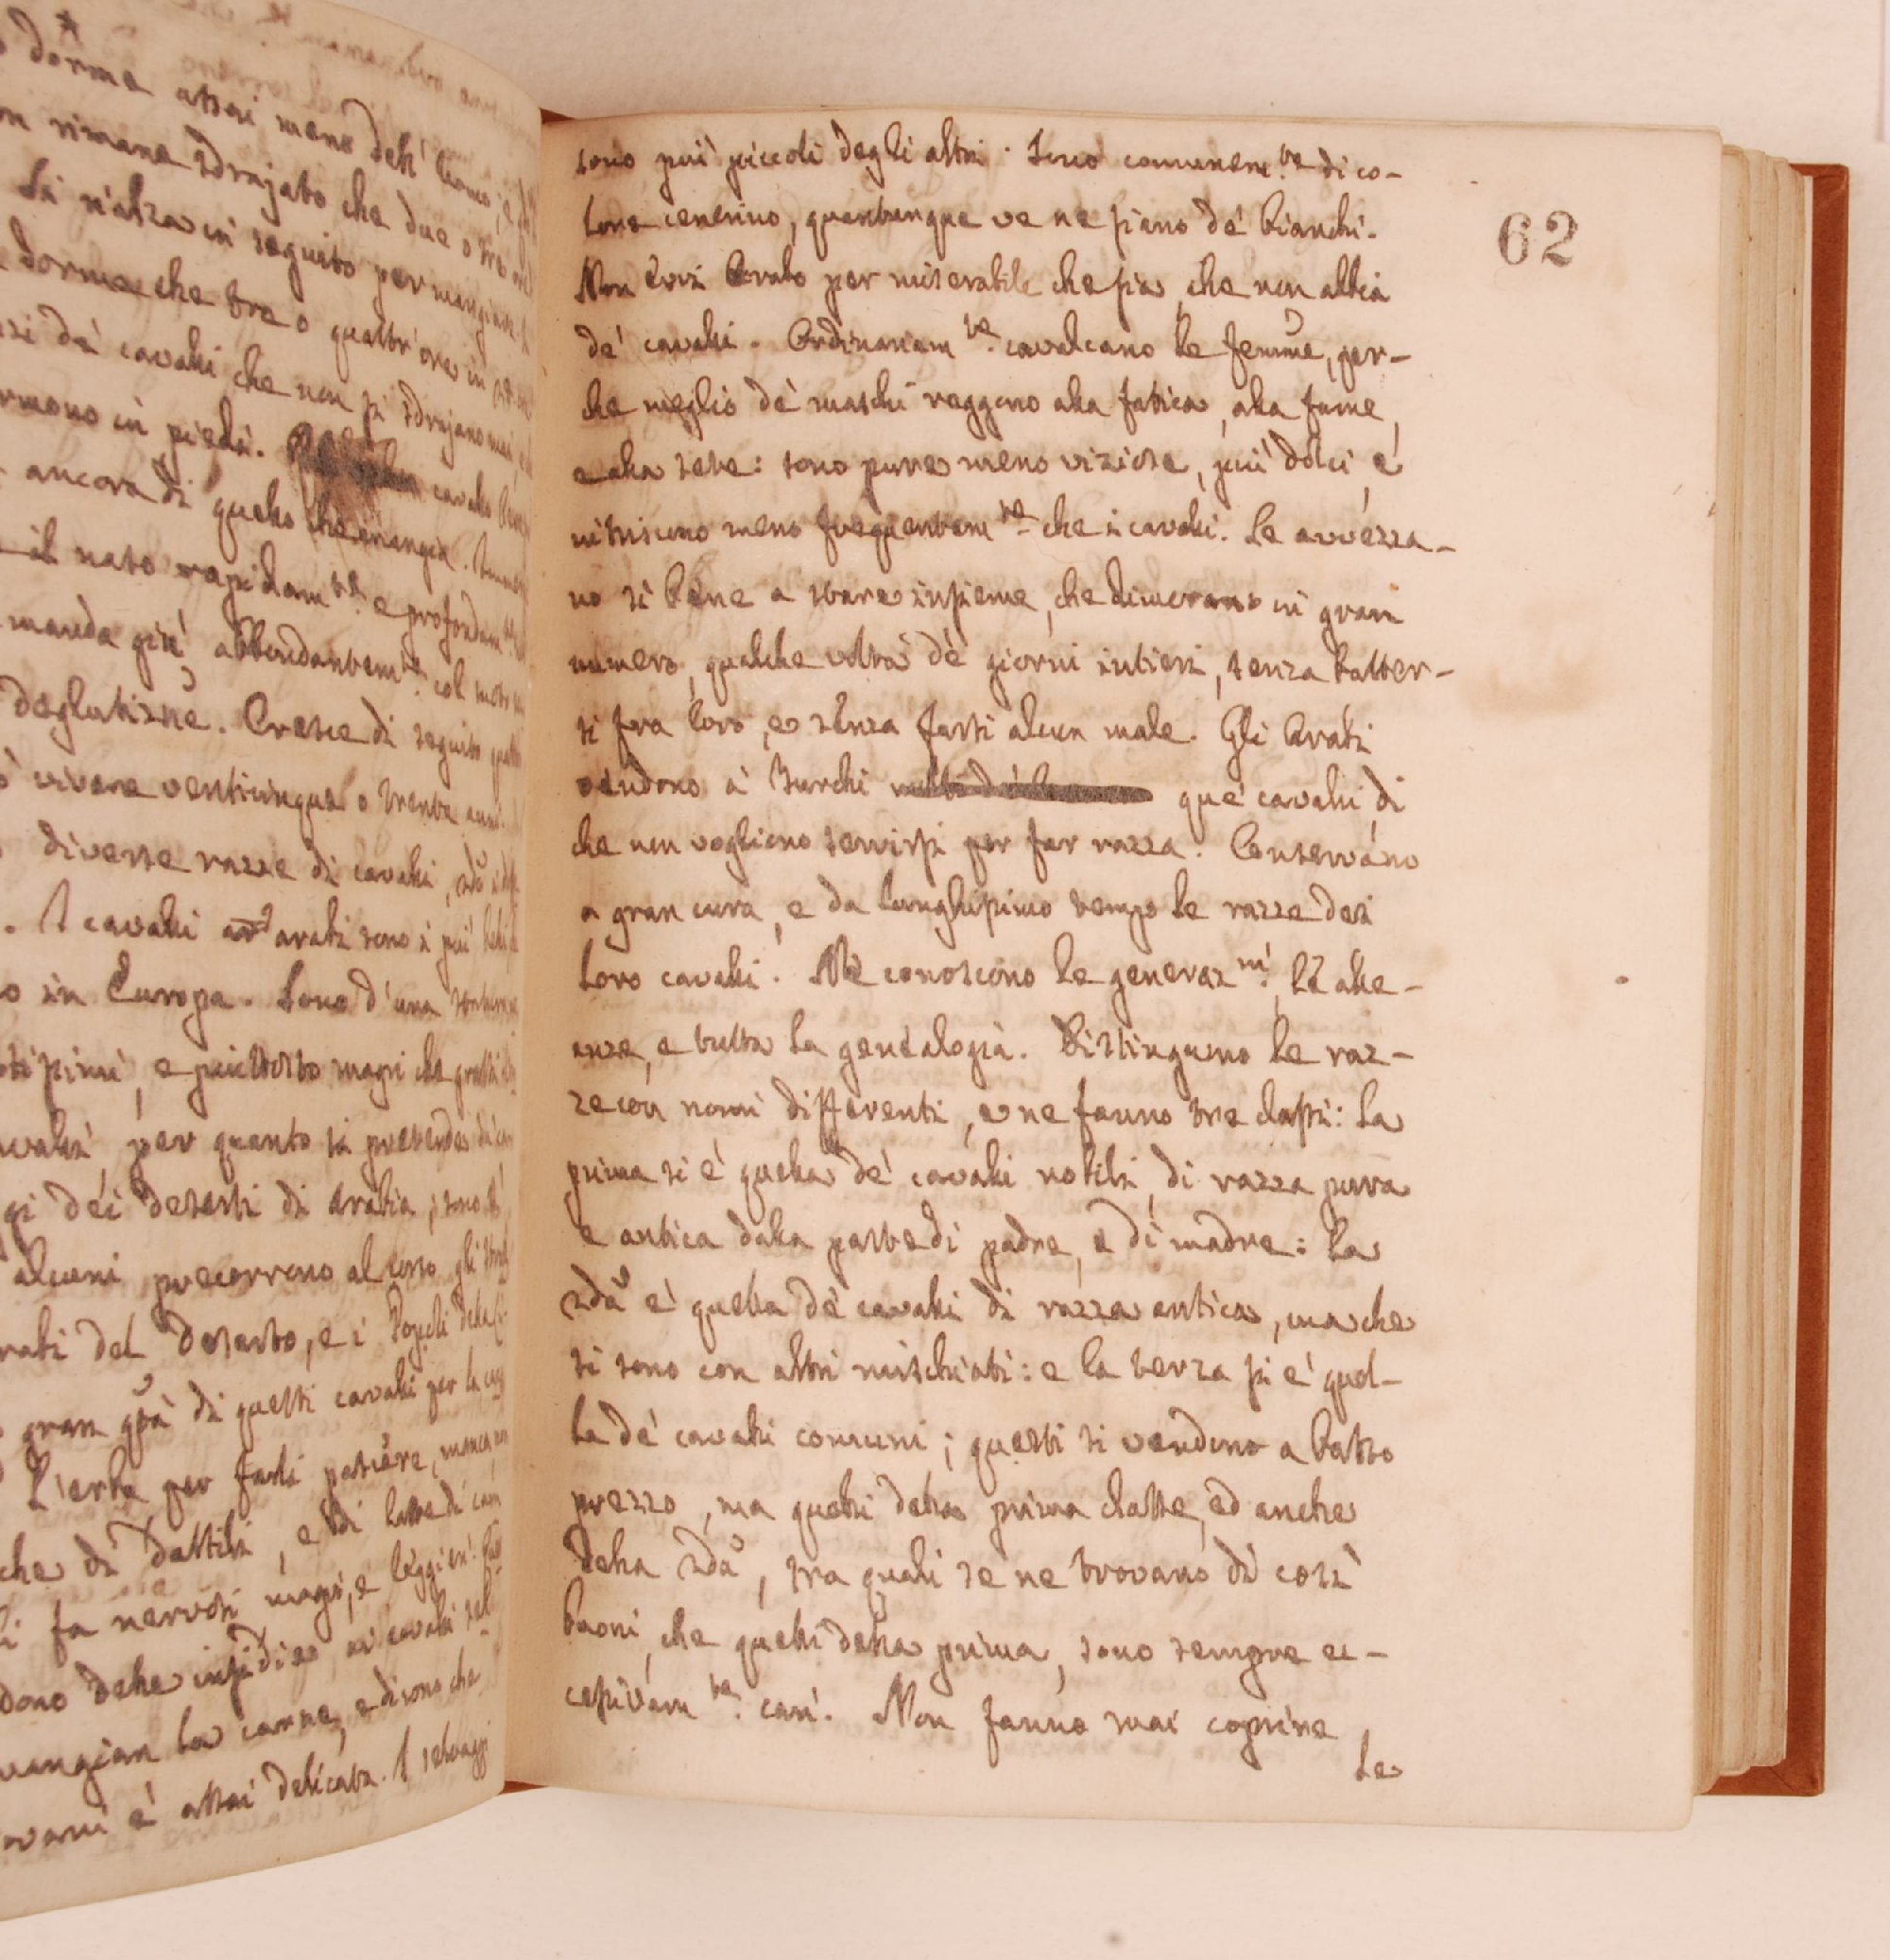 dorme assai meno dell' uomo, e
rimane sdrajato che due o tre
Si n'alza in seguito per mangiare
dorme che tre o quattr' ore in
de' cavalli che non si sdrajano mai
in piedi. cavallo
ancora di quello che mangia.
il naso rapidam.te e profondam.te
manda giù abbondantem.te col moto
deglutizne. Cresce di seguito
vivere venticinque o trenta anni.
diverse razze di cavalli
I cavalli arabi sono i più belli
in Europa. Sono d'una
e piuttosto magri che grassi
per quanto si pretende
dei deserti di Arabia, sono
alcuni precorrono al corso gli
del Deserto, e i Popoli della
gran qtà di questi cavalli per la
L'erba per farli pascere
che di dattili, e di latte di
fa nervosi magri, e leggieri.
delle insidie ai cavalli
mangian la carne, e dicono che
è assai delicata. I selvaggi
62
sono più piccoli degli altri. Sono comunem.te di co-
lore cenerino, quantunque ve ne siano de' bianchi.
Non evvi Arabo per miserabile che sia, che non abbia
de' cavalli. Ordinariam.te cavalcano le femine, per-
che meglio de' maschi reggono alla fatica, alla fame,
e alla sete: sono pure meno viziose, più dolci, e
nitriscono meno frequentem.te che i cavalli. Le avvezza-
no sì bene a stare insieme, che dimorano in gran
numero, qualche volta de' giorni intieri, senza batter-
si fra loro, e senza farsi alcun male. Gli Arabi
vendono a' Turchi que' cavalli, di
che non vogliono servirsi per far razza. Conservano
a gran cura, e da lunghissimo tempo le razze dei
loro cavalli. Ne conoscono le generaz.ni, le alle-
anze, e tutta la genealogia. Distinguono le raz-
ze con nomi differenti, e ne fanno tre classi: la
prima si e' quella de' cavalli nobili, di razza pura
e antica dalla parte di padre, e di madre: la
2da e' quella de' cavalli di razza antica, ma che
si sono con altri mischiati: e la terza si e' quel-
la de' cavalli comuni; questi si vendono a basso
prezzo, ma quelli della prima classe, ed anche
della 2da, tra quali se ne trovano di così
buoni, che quelli della prima, sono sempre ec-
cessivam.te cari. Non fanno mai coprire
le